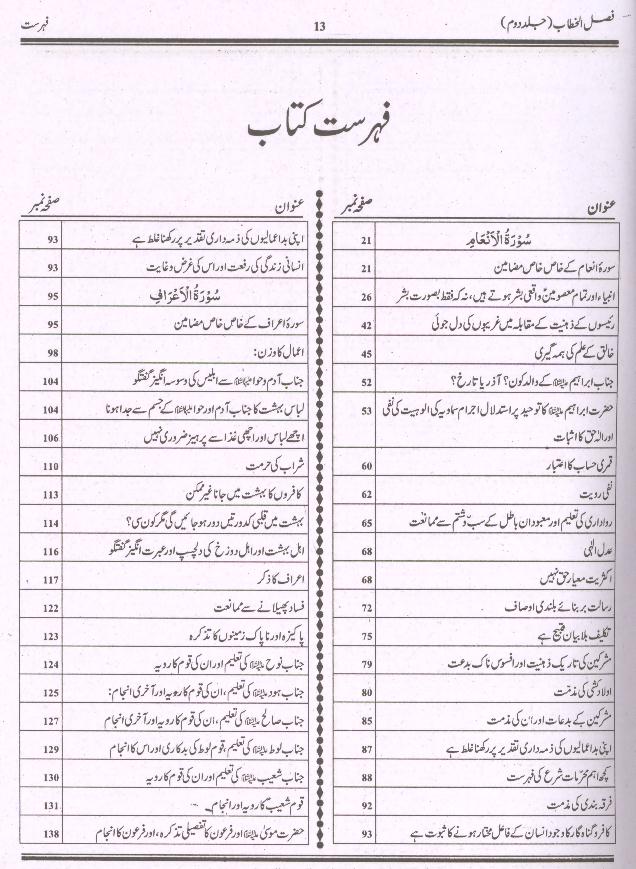 فصل الخطاب (جلد دوم) 13 فہرست
فہرست کتاب
عنوان صفحہ نمبر
سُوْرَةُ الْاَنْعَام 21
سورۂ انعام کے خاص خاص مضامین 21
انبیاء اور تمام معصومین واقعی بشر ہوتے ہیں، نہ کہ فقط بصورت بشر 26
رئیسوں کے ذہنیت کے مقابلہ میں غریبوں کی دل جوئی 42
خالق کے علم کی ہمہ گیری 45
جناب ابراہیم علیہ السلام کے والد کون؟ آذر یا تارخ؟ 52
حضرت ابراہیم علیہ السلام کا توحید پر استدلال اجرام سماویہ کی الوہیت کی نفی 53
اور الٰہ حق کا اثبات
قمری حساب کا اعتبار 60
نفی رویت 62
رواداری کی تعلیم اور معبودان باطل کے سب و شتم سے ممانعت 65
عدل الٰہی 68
اکثریت معیار حق نہیں 68
رسالت بر بنائے بلندی اوصاف 72
تکلیف بلا بیان قبیح ہے 75
مشرکین کی تاریک ذہنیت اور افسوس ناک بدعت 79
اولاد کشی کی مذمت 80
مشرکین کے بدعات اور ان کی مذمت 85
اپنی بداعمالیوں کی ذمہ داری تقدیر پر رکھنا غلط ہے 87
کچھ اہم محرمات شرع کی فہرست 88
فرقہ بندی کی مذمت 92
کافر و گناہ گار کا وجود انسان کے فاعل مختار ہونے کا ثبوت ہے 93
عنوان صفحہ نمبر
اپنی بداعمالیوں کی ذمہ داری تقدیر پر رکھنا غلط ہے 93
انسانی زندگی کی رفعت اور اس کی غرض وغایت 93
سُوْرَةُ الْاَعْرَافِ 95
سورۂ اعراف کے خاص خاص مضامین 95
اعمال کا وزن: 98
جناب آدم و حوا علیہما السلام سے ابلیس کی وسوسہ انگیز گفتگو 104
لباس بہشت کا جناب آدم اور حوا علیہما السلام کے جسم سے جدا ہونا 104
اچھے لباس اور اچھی غذا سے پرہیز ضروری نہیں 106
شراب کی حرمت 110
کافروں کا بہشت میں جانا غیر ممکن 113
بہشت میں قلبی کدورتیں دور ہو جائیں گی مگر کون سی؟ 114
اہل بہشت اور اہل دوزخ کی دلچسپ اور عبرت انگیز گفتگو 116
اعراف کا ذکر 117
فساد پھیلانے سے ممانعت 122
پاکیزہ اور ناپاک زمینوں کا تذکرہ 123
جناب نوح علیہ السلام کی تعلیم اور ان کی قوم کا رویہ 124
جناب ہود علیہ السلام کی تعلیم، ان کی قوم کا رویہ اور آخری انجام: 125
جناب صالح علیہ السلام کی تعلیم، ان کی قوم کا رویہ اور آخری انجام 127
جناب لوط علیہ السلام کی تعلیم، قوم لوط کی بدکاری اور اس کا انجام 129
جناب شعیب علیہ السلام کی تعلیم اور ان کی قوم کا رویہ 130
قوم شعیب کا رویہ اور انجام 131
حضرت موسیٰ علیہ السلام اور فرعون کا تفصیلی تذکرہ، اور فرعون کا انجام 138